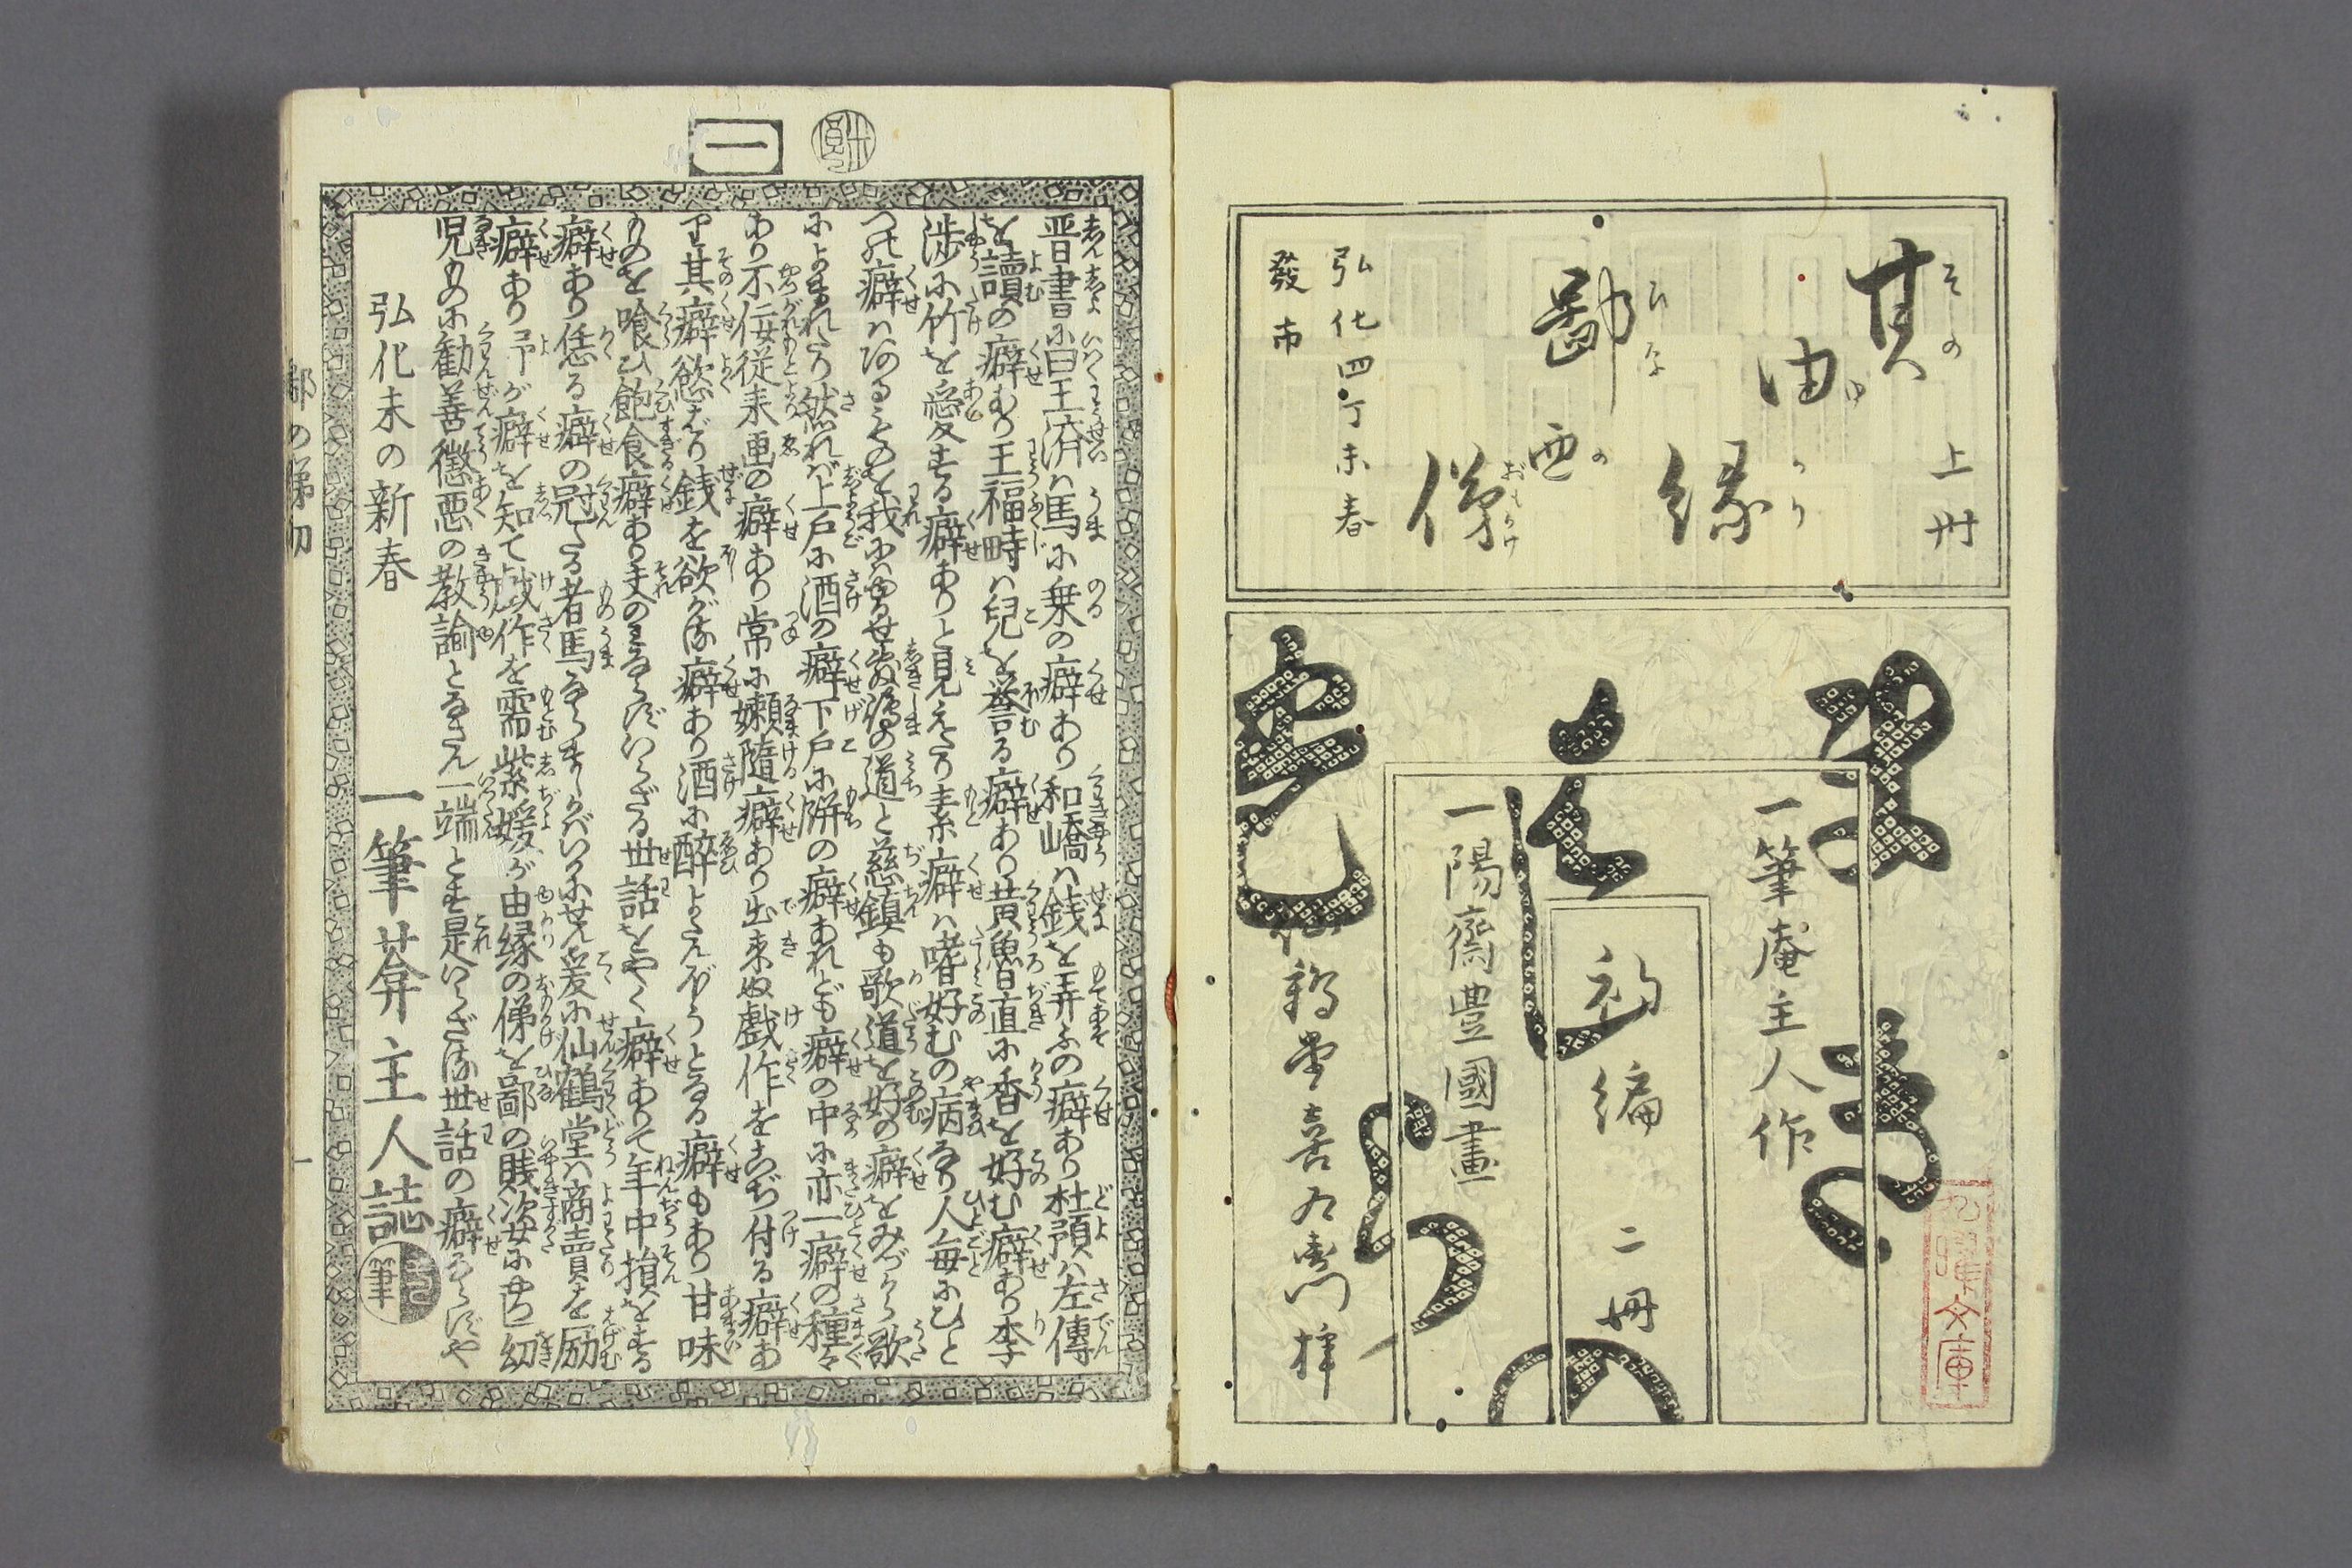 其由縁鄙廼俤
上冊
弘化四丁未春
發市
一筆庵主人作
初編 二冊
一陽齋豐國畫
鶴堂喜右衛門梓
文庫
一
晋書に曰王済ハ馬に乗の癖あり和嶠ハ銭を弄ふの癖あり杜預ハ左傳
を讀の癖あり王福畤ハ兒を誉る癖あり黄魯直に香を好む癖あり李
渉に竹を愛する癖ありと見えたり素癖ハ嗜好むの病なり人毎にひと
つの癖ハあるものを我にハゆるせ敷嶋の道と慈鎮も歌道を好の癖をみづから歌
によまれたり然れバ上戸に酒の癖下戸に餅の癖あれども癖の中に亦一癖の種々
あり不佞従来画の癖あり常に嬾隨癖あり出来ぬ戯作をこぢ付る癖あ
り其癖慾ばり銭を欲がる癖あり酒に醉よたんぼうとなる癖もあり甘味
ものを喰ひ飽食癖あり夫のミならずいらざる世話をやく癖ありて年中損をする
癖あり恁る癖の冠たる者馬ならましかバいかにせん爰に仙鶴堂ハ商賣を励
癖あり予が癖を知て戯作を需紫媛が由縁の俤を鄙の賎次女に換幼
児ものに勧善懲悪の教諭となさん一端とす是いらざる世話の癖ならずや
弘化未の新春
一筆葊主人誌
鄙の俤初
一